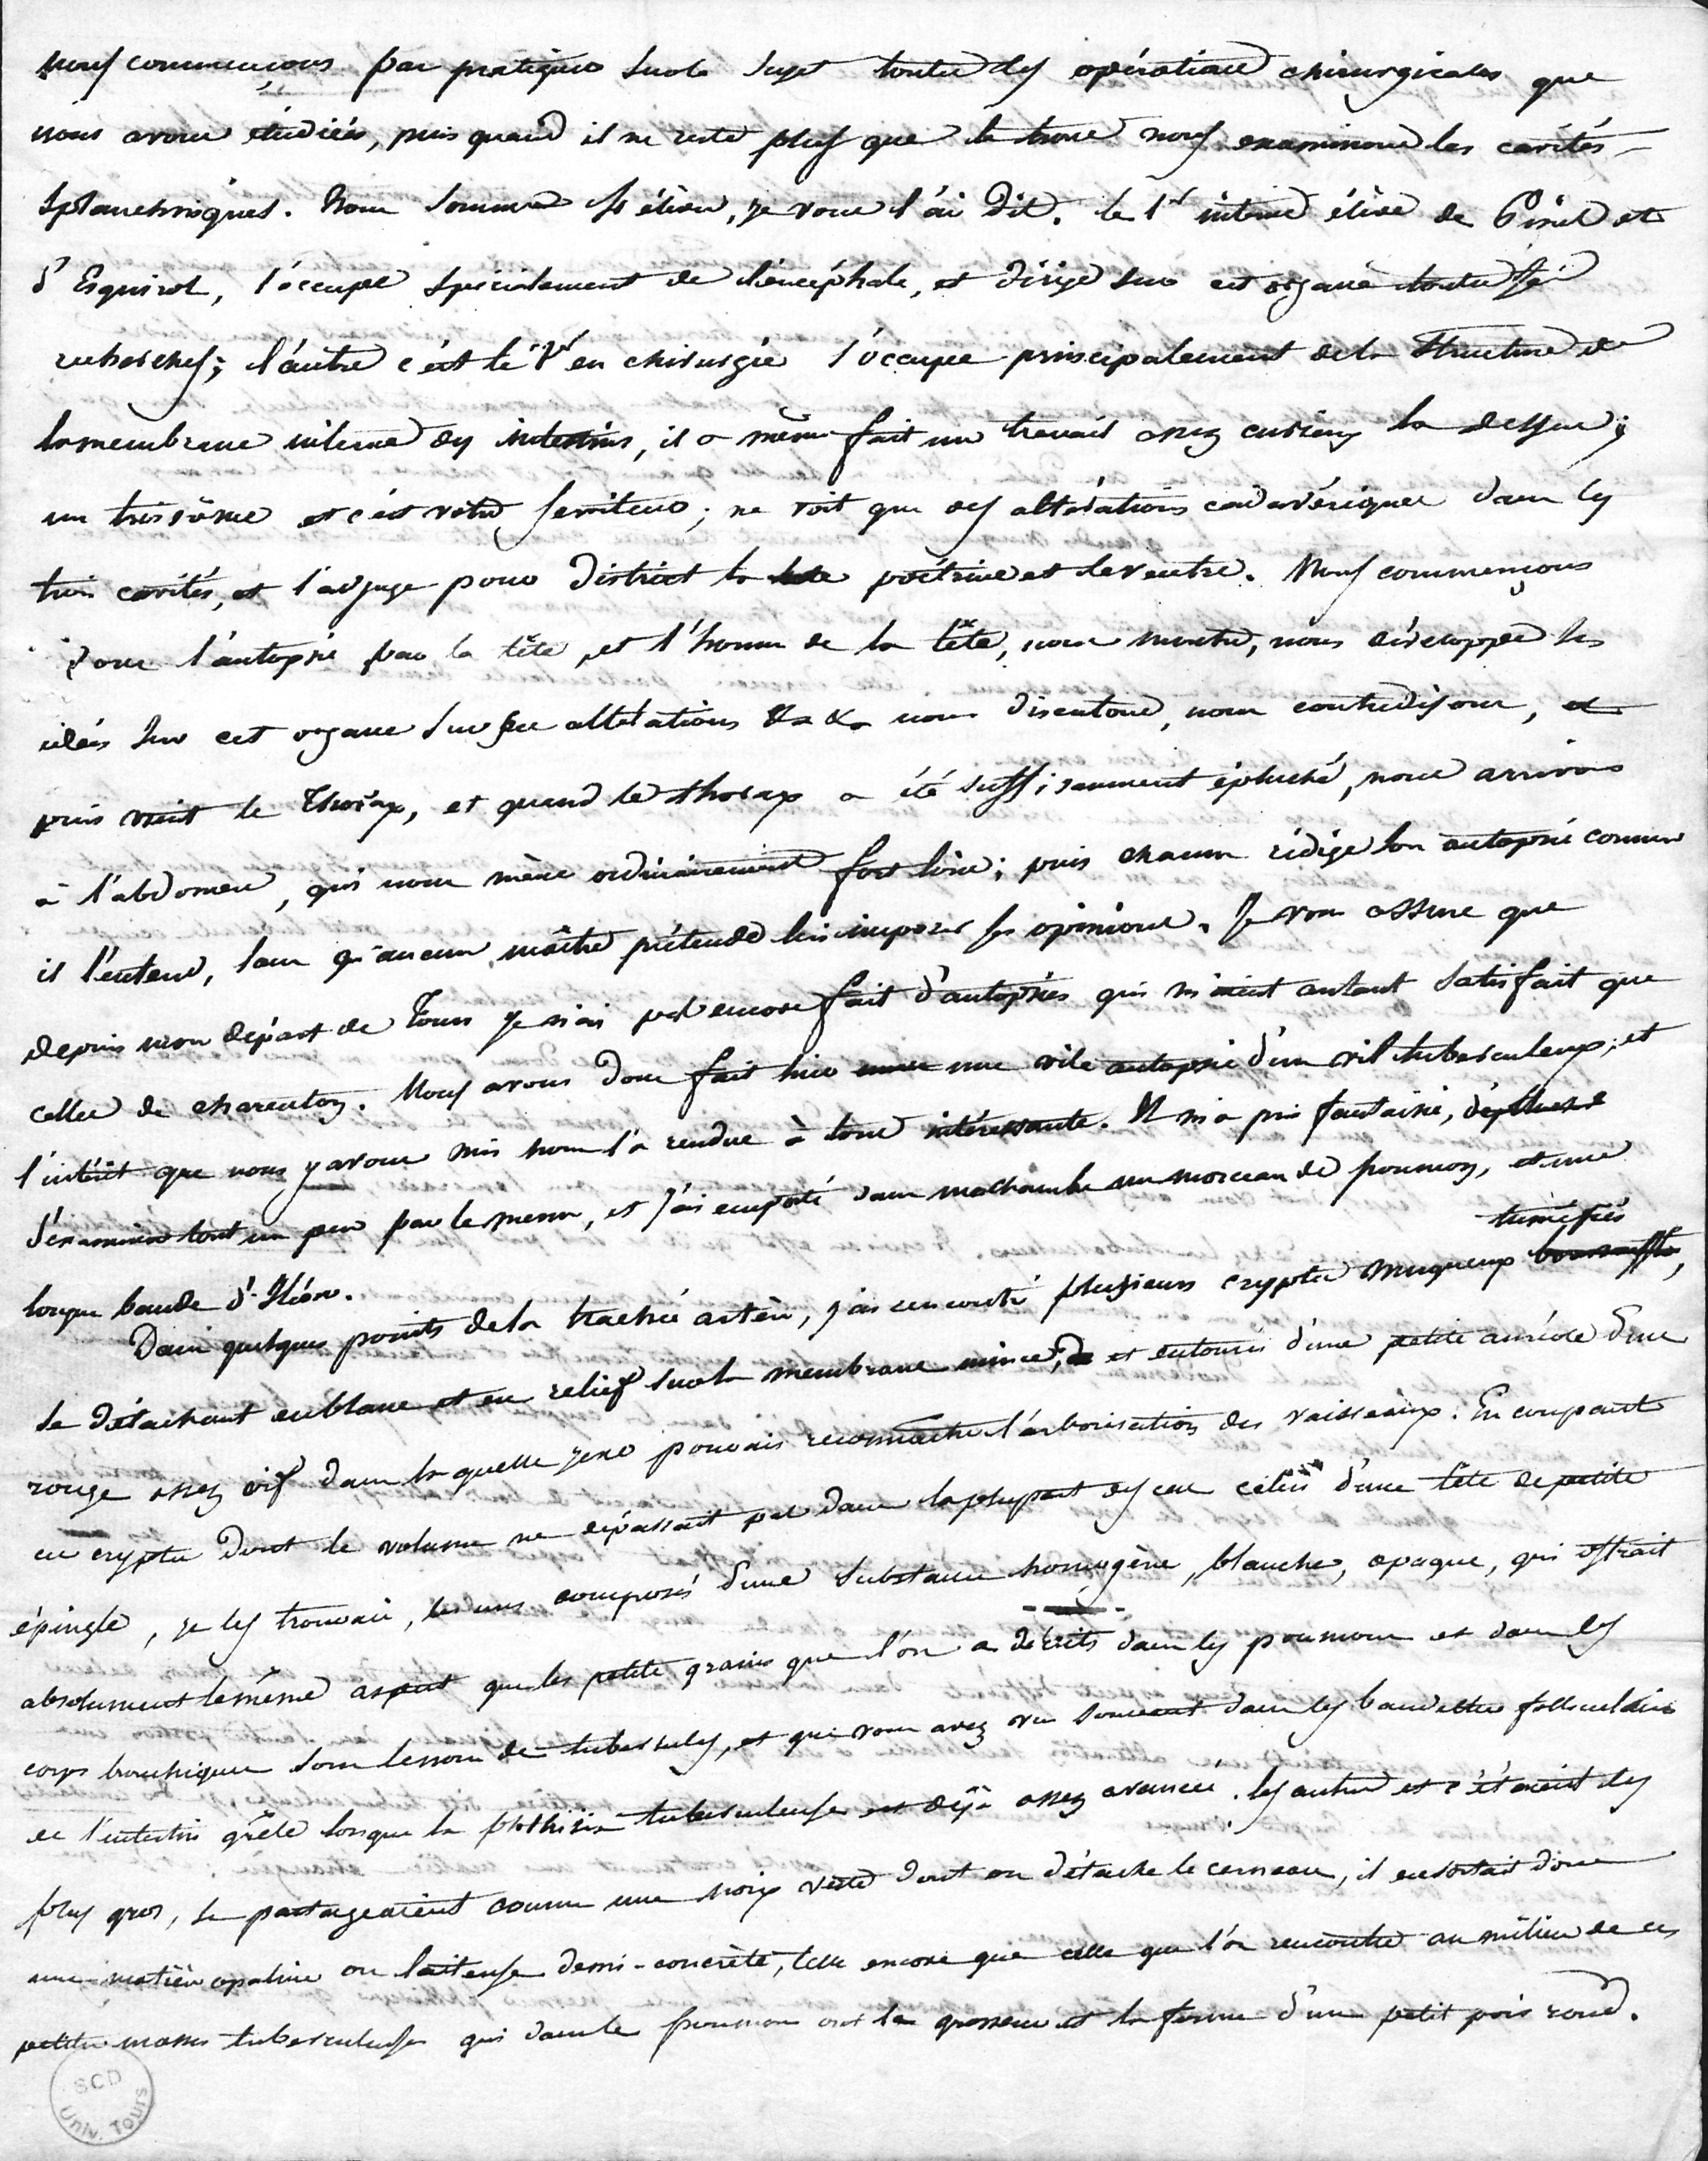 nous commençons par pratiquer sur le sujet toutes les opérations chirurgicales que
nous avons étudiées, puis quand il ne reste plus que le tronc nous examinons les cavités
splanchniques. Nous sommes élèves, je vous l'ai dit. le 1er interne élève de Pinel et
d'Esquirol, s'occupe spécialement de l'encéphale, et dirige sur cet organe toutes ses
recherches; l'autre c'est le 1er en chirurgie s'occupe principalement de la structure de
la membrane interne des intestins, il a même fait un travail assez curieux la dessus;
un troisième et c'est votre serviteur; ne voit que des altérations cadavériques dans les
trois cavités, et s'adjuge pour district la poitrine et le ventre. Nous commençons
donc l'autopsie par la tête, et l'homme de la tête, nous montre, nous développe ses
idées sur cet organe sur ses altérations &a &a nous discutons, nous contredisons, et
puis vient le Thorax, et quand le thorax a été suffisamment épluché, nous arrivons
à l'abdomen, qui nous mène ordinairement fort loin; puis chacun rédige son autopsie comme
il l'entend, sans qu'aucun maître prétende lui imposer ses opinions. Je vous assure que
depuis mon départ de Tours je n'ai pas encore fait d'autopsies qui m'aient autant satisfait que
celles de charenton. Nous avons donc fait hier une vile autopsie d'un vil tuberculeux; et
l'intérêt que nous y avons mis nous l'a rendue à tous intéressante. Il m'a pris fantaisie,
d'examiner tout un peu par le menu, et j'ai emporté dans ma chambre un morceau de poumon, et une
longue bande d'Iléon.
tuméfiés
Dans quelques points de la trachée artère, j'ai rencontré plusieurs cryptes muqueux boursouflés,
se détachant en blanc et en relief sur la membrane mince, et entourés d'une petite auréole d'un
rouge assez vif dans la quelle je pouvais reconnaître l'arborisation des vaisseaux. En coupant
ces cryptes dont le volume ne dépassait pas dans la plupart des cas celui d'une tête de petite
épingle, je les trouvais, les uns composés d'une substance homogène, blanche, opaque, qui offrait
absolument le même aspect que les petits grains que l'on a décrits dans les poumons et dans les
corps bronchiques sous le nom de tubercules, et que vous avez vu souvent dans les bandelettes folliculaires
de l'intestin grêle lorsque la phthisie tuberculeuse est déjà assez avancée. les autres et c'étaient les
plus gros, se partageaient comme une noix verte dont on détache le cerneau, il en sortait donc
une matière opaline ou laiteuse demi-concrète, telle encore que celle que l'on rencontre au milieu de ces
petites masses tuberculeuses qui dans le poumon ont la grosseur et la forme d'un petit pois rond.
SCD
Univ. Tours